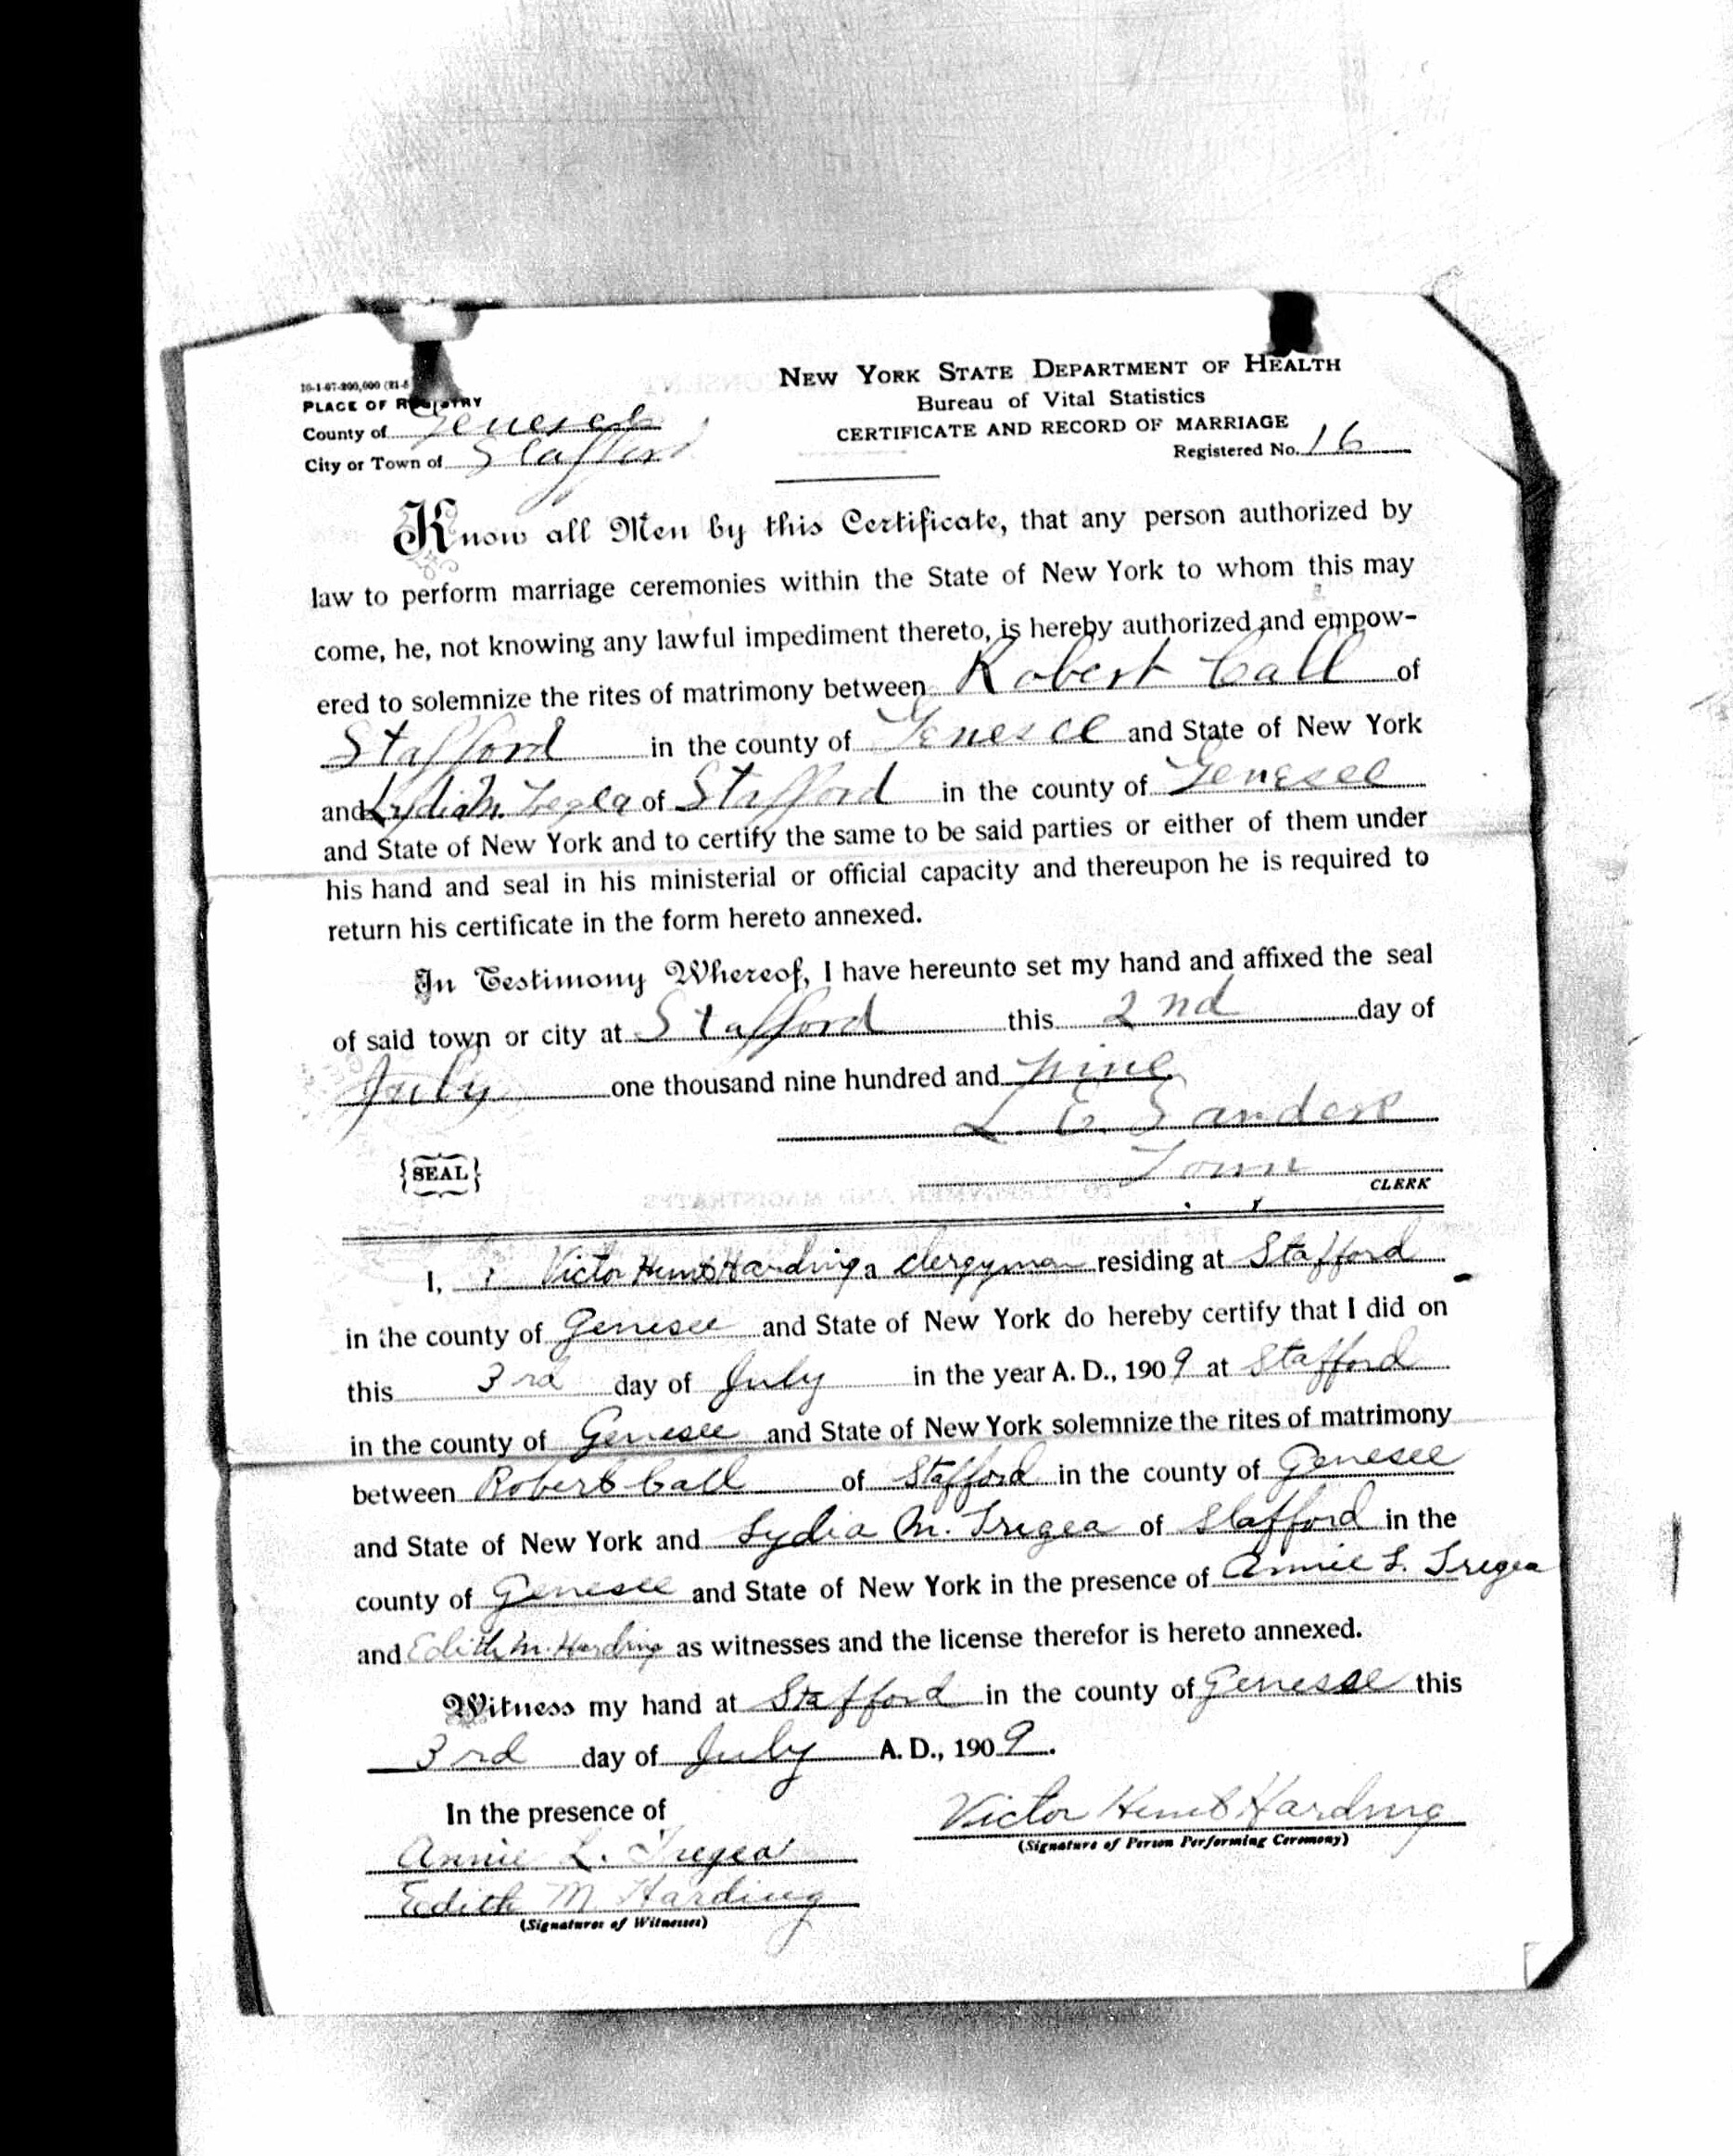 10-1-07-200,000 (21-
PLACE OF REGISTRY
County of Genesee
City or Town of Stafford
NEW YORK STATE DEPARTMENT OF HEALTH
Bureau of Vital Statistics
CERTIFICATE AND RECORD OF MARRIAGE
Registered No. 16
Know all Men by this Certificate, that any person authorized by
law to perform marriage ceremonies within the State of New York to whom this may
come, he, not knowing any lawful impediment thereto, is hereby authorized and empow-
ered to solemnize the rites of matrimony between Robert Call of
Stafford in the county of Genesee and State of New York
and Lydia M. of Stafford in the county of Genesee
and State of New York and to certify the same to be said parties or either of them under
his hand and seal in his ministerial or official capacity and thereupon he is required to
return his certificate in the form hereto annexed.
In Testimony Whereof, I have hereunto set my hand and affixed the seal
of said town or city at Stafford this 2nd day of
July one thousand nine hundred and nine
L. E. Sanders
Town
CLERK
{SEAL}
I, Victor Harding a clergyman residing at Stafford
in the county of Genesee and State of New York do hereby certify that I did on
this 3rd day of July in the year A. D., 1909 at Stafford
in the county of Genesee and State of New York solemnize the rites of matrimony
between Robert Call of Stafford in the county of Genesee
and State of New York and Lydia M. Tregea of Stafford in the
county of Genesee and State of New York in the presence of Annie L. Tregea
and Edith M. Harding as witnesses and the license therefor is hereto annexed.
Witness my hand at Stafford in the county of Genesee this
3rd day of July A. D., 1909.
In the presence of
Annie L. Tregea
Edith M Harding
(Signatures of Witnesses)
Victor Harding
(Signature of Person Performing Ceremony)